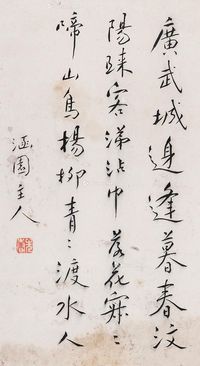 廣武城邊逢暮春汶
陽歸客涕沾巾落花寂〻
啼山鳥楊柳青〻渡水人
涵園主人